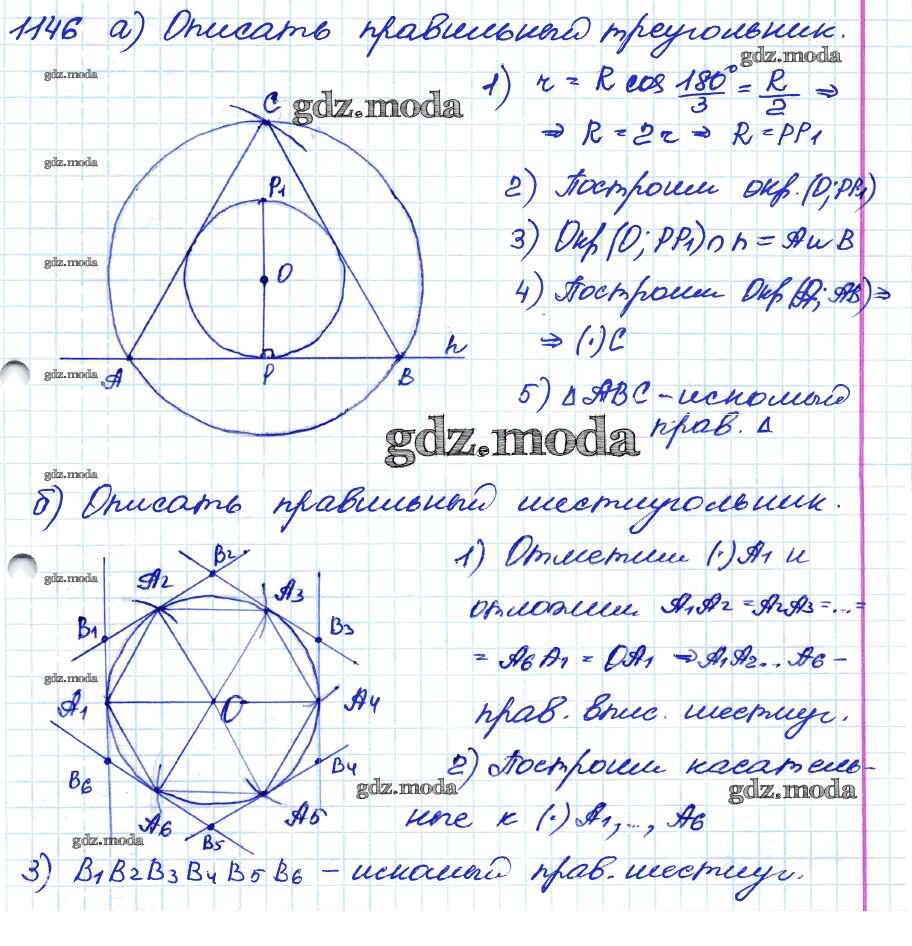 1146 а) Описать правильный треугольник.
gdz.moda
gdz.moda
1) r = R cos 180°/3 = R/2 ⇒
C gdz.moda
⇒ R = 2r ⇒ R = PP1
gdz.moda
P1
2) Построим окр.(O;PP1)
3) Окр(O; PP1)∩h = A и B
gdz.moda
O
4) Построим Окр(A; AB)⇒
⇒ (·)C
h
gdz.moda
A P B
5) △ABC – искомый
прав. △
gdz.moda
gdz.moda
б) Описать правильный шестиугольник.
B2
1) Отметим (·)A1 и
gdz.moda
A2 A3
отложим A1A2 = A2A3 = ... =
B1 B3
= A6A1 = OA1 ⇒ A1A2... A6 –
gdz.moda
A1 O A4
прав. впис. шестиуг.
B6 B4
2) Построим касатель-
gdz.moda
gdz.moda
A6 A5
ные к (·) A1,..., A6
gdz.moda
B5
3) B1B2B3B4B5B6 – искомый прав. шестиуг.